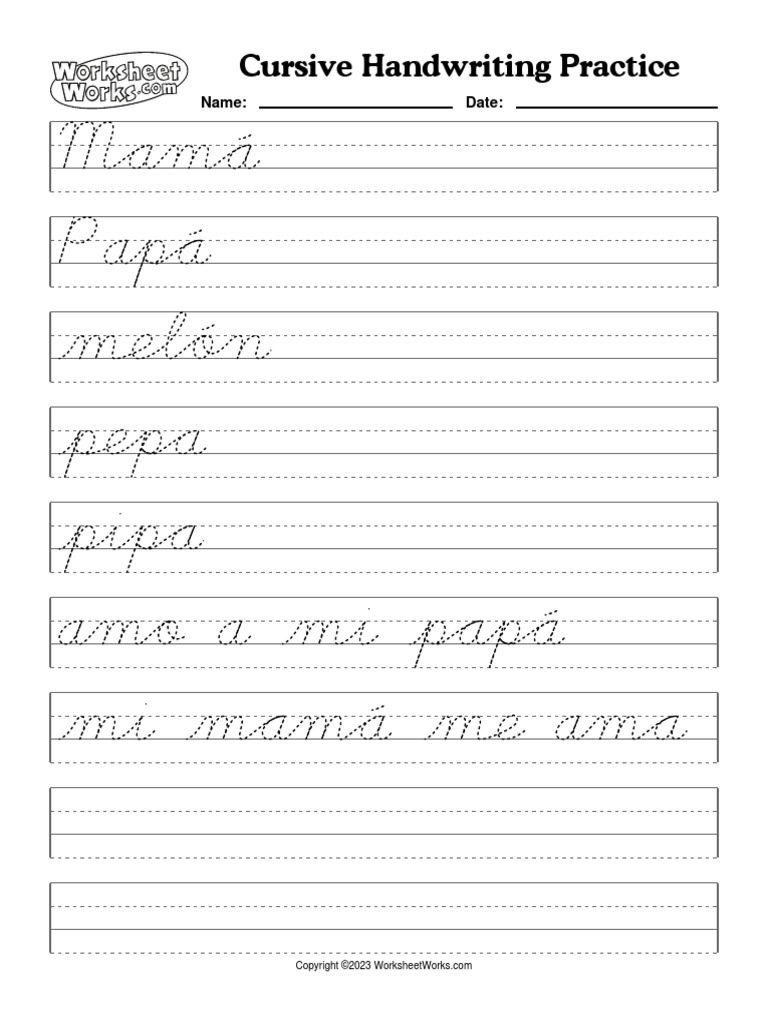 Worksheet Works.com
Cursive Handwriting Practice
Name: Date:
Mamá
Papá
melón
pepa
pipa
amo a mi papá
mi mamá me ama
Copyright ©2023 WorksheetWorks.com